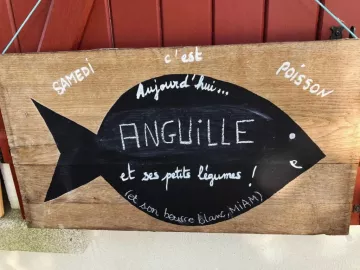 SAMEDI c'est POISSON
Aujourd'hui...
ANGUILLE
et ses petits légumes !
(et son beurre blanc, MIAM)